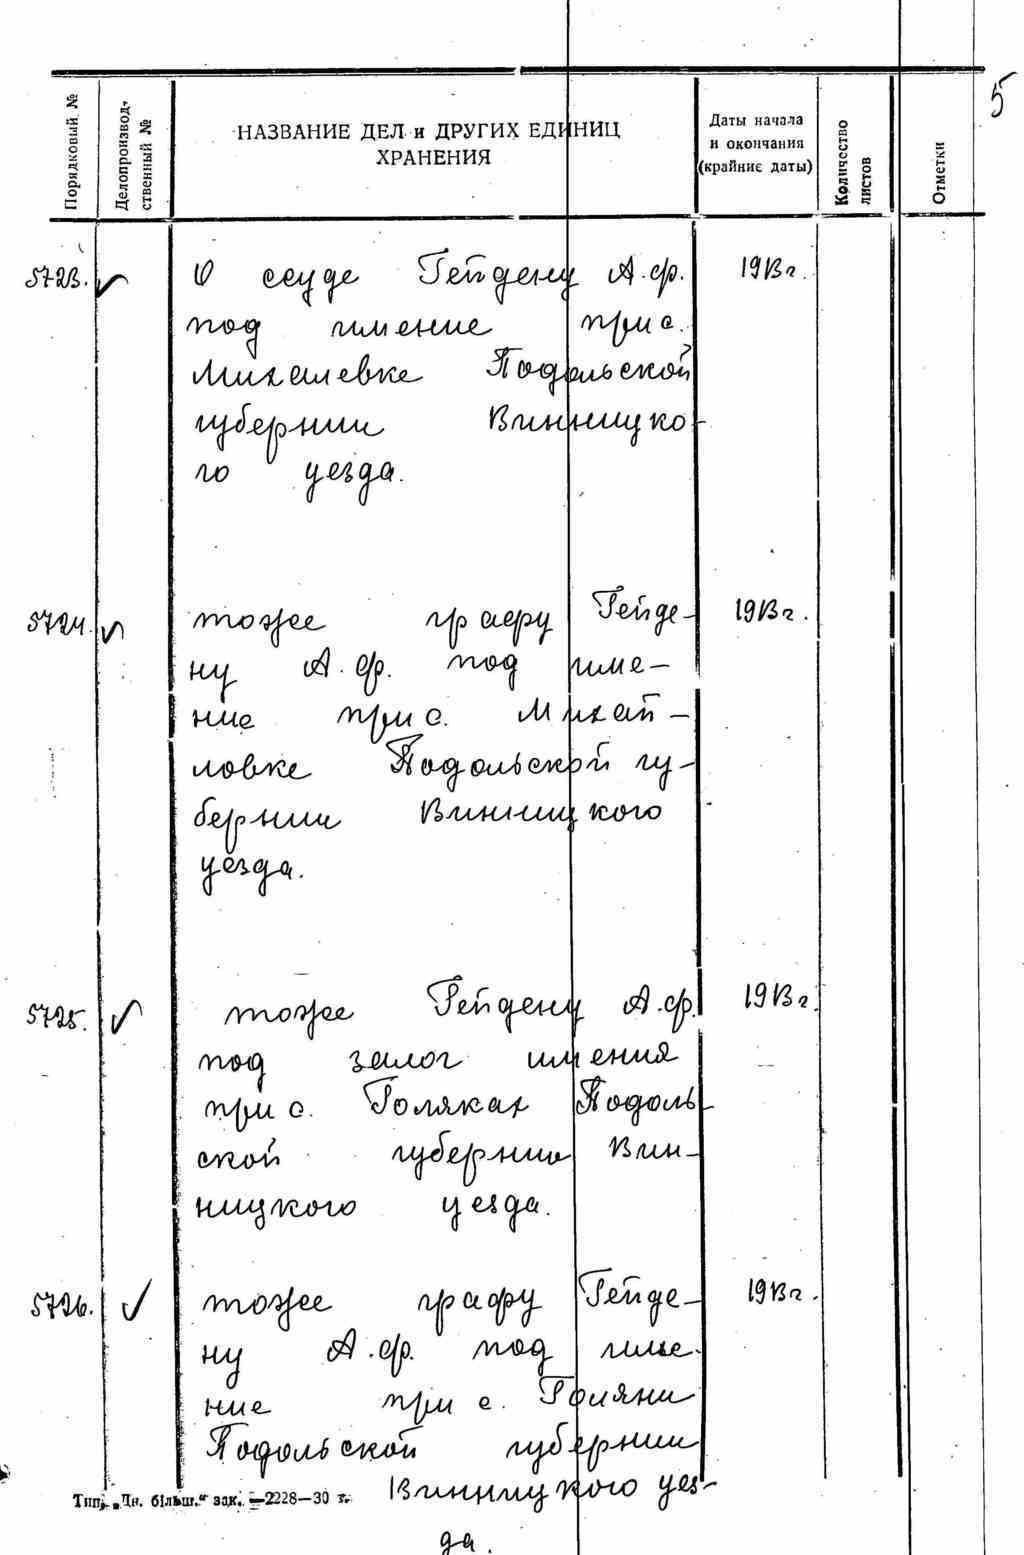 5
Порядковый №
Делопроизвод-
ственный №
НАЗВАНИЕ ДЕЛ и ДРУГИХ ЕДИНИЦ
ХРАНЕНИЯ
Даты начала
и окончания
(крайние даты)
Количество
листов
Отметки
5723. О ссуде Гейдену А.Ф. 1913г.
под имение при с.
Михалевке Подольской
губернии Винницко-
го уезда.
5724. тоже графу Гейде- 1913г.
ну А.Ф. под име-
ние при с. Михай-
ловке Подольской гу-
бернии Винницкого
уезда.
5725. тоже Гейдену А.Ф. 1913г.
под залог имения
при с. Голяках Подоль-
ской губернии Вин-
ницкого уезда.
5726. тоже графу Гейде- 1913г.
ну А.Ф. под име-
ние при с. Голяки
Подольской губернии
Винницкого уез-
да.
Тип. „Дн. більш." зак. —2228—30 г.